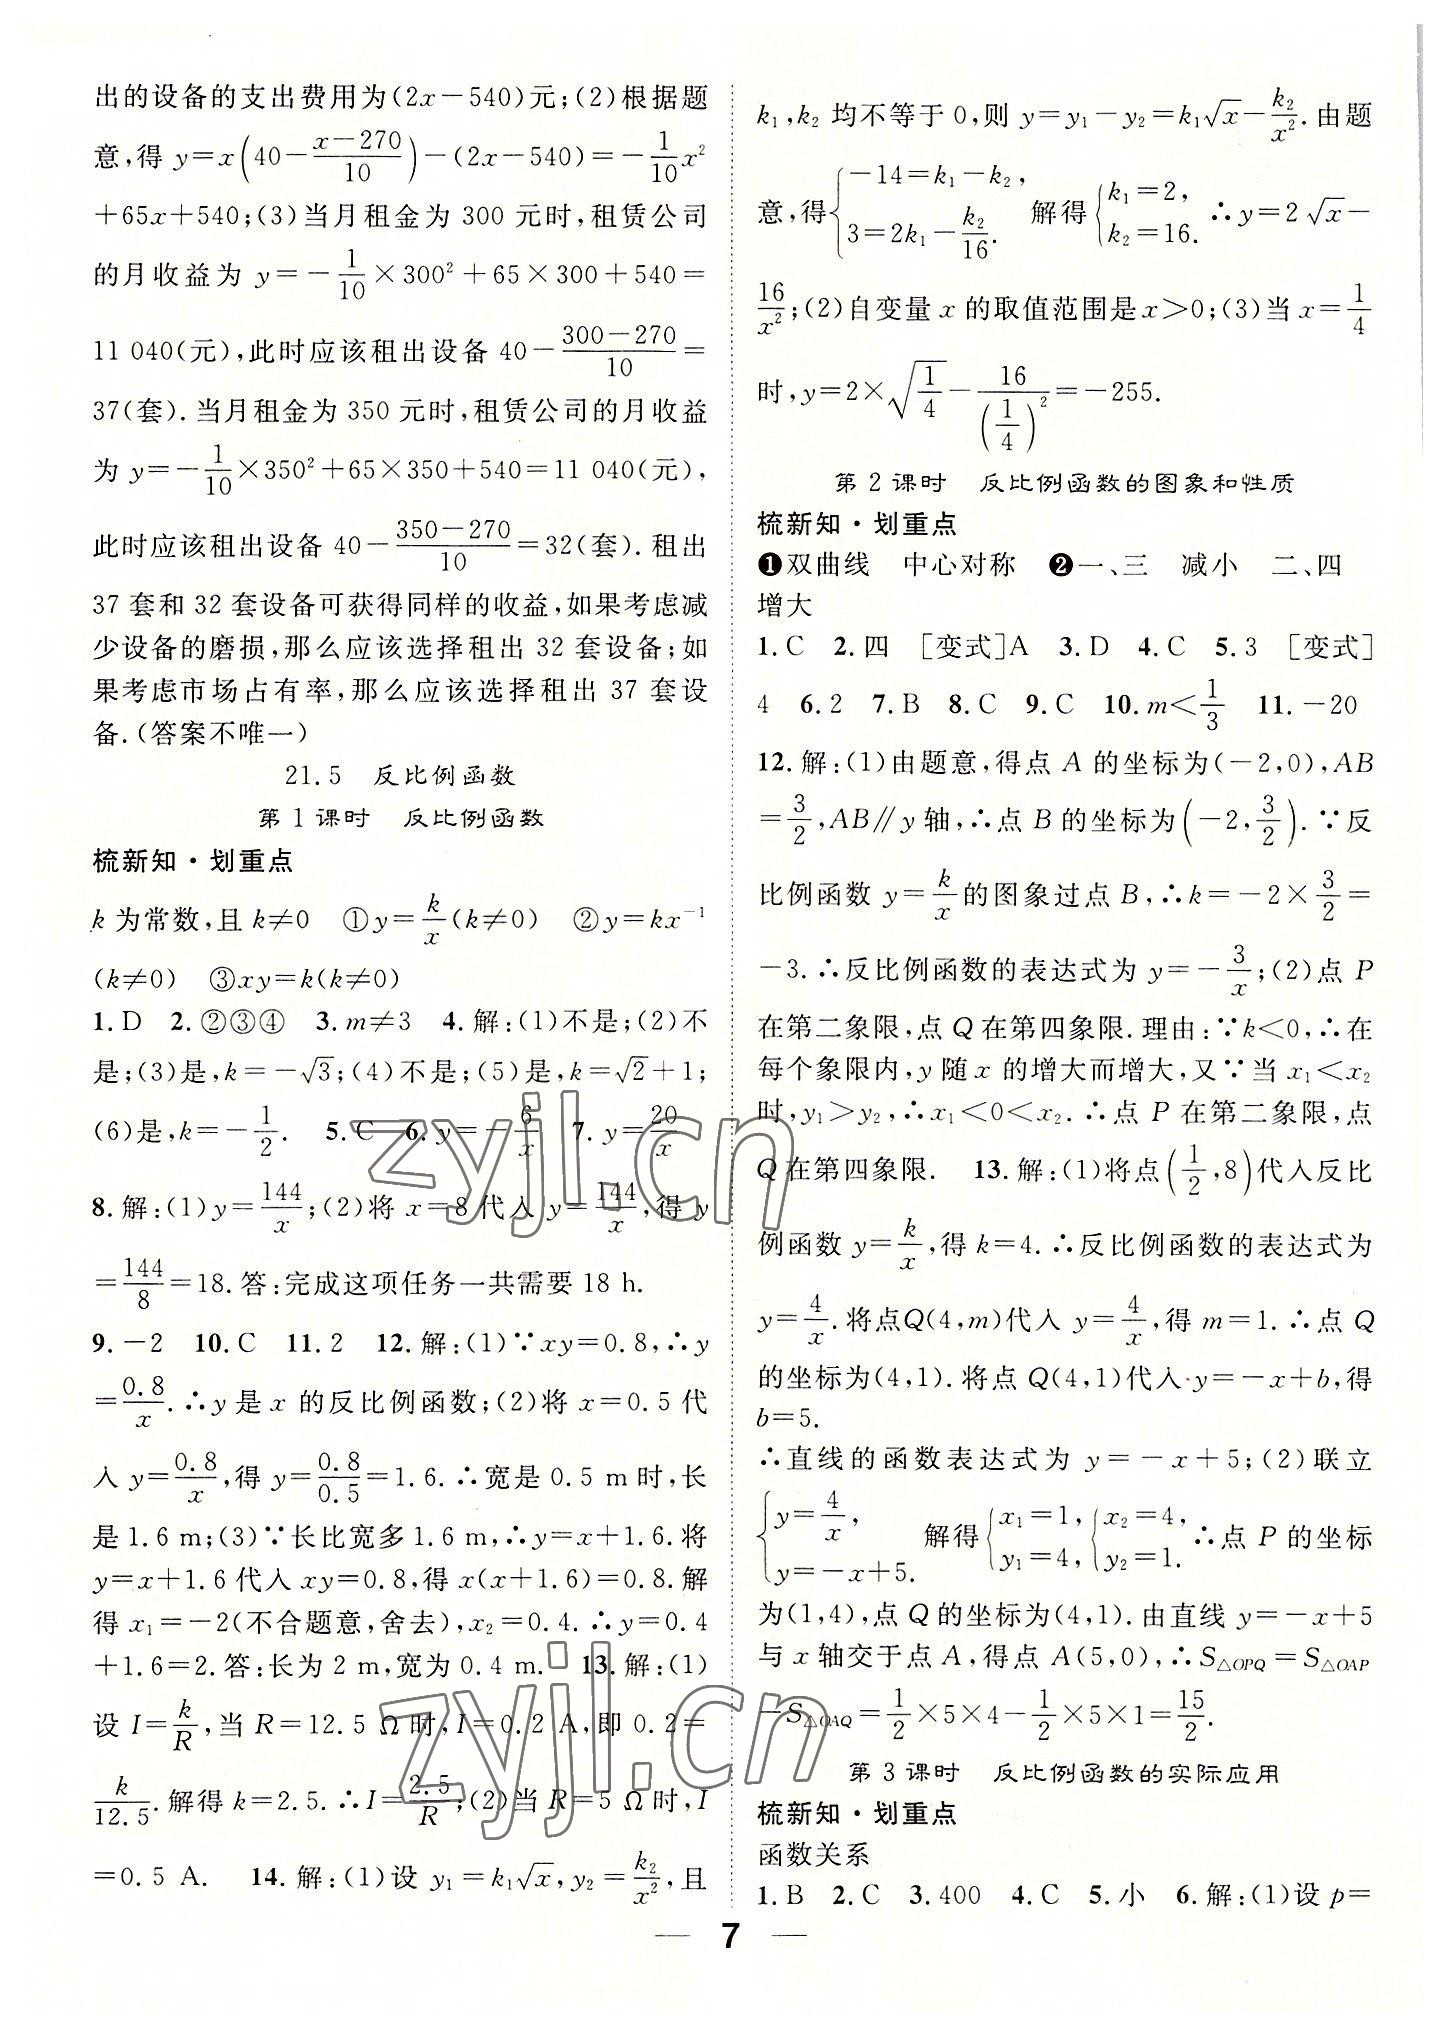 出的设备的支出费用为(2x－540)元;(2)根据题
意,得 y=x(40－(x－270)/10)－(2x－540)=－1/10x²
+65x+540;(3)当月租金为 300 元时,租赁公司
的月收益为 y=－1/10×300²+65×300+540=
11 040(元),此时应该租出设备 40－(300－270)/10=
37(套).当月租金为 350 元时,租赁公司的月收益
为 y=－1/10×350²+65×350+540=11 040(元),
此时应该租出设备 40－(350－270)/10=32(套).租出
37 套和 32 套设备可获得同样的收益,如果考虑减
少设备的磨损,那么应该选择租出 32 套设备;如
果考虑市场占有率,那么应该选择租出 37 套设
备.(答案不唯一)
21.5 反比例函数
第 1 课时 反比例函数
梳新知·划重点
k 为常数,且 k≠0 ①y=k/x(k≠0) ②y=kx⁻¹
(k≠0) ③xy=k(k≠0)
1.D 2.②③④ 3.m≠3 4.解:(1)不是;(2)不
是;(3)是,k=－√3;(4)不是;(5)是,k=√2+1;
(6)是,k=－1/2. 5.C 6.y=－6/x 7.y=20/x
8.解:(1)y=144/x;(2)将 x=8 代入 y=144/x,得 y
=144/8=18.答:完成这项任务一共需要 18 h.
9.－2 10.C 11.2 12.解:(1)∵xy=0.8,∴y
=0.8/x.∴y 是 x 的反比例函数;(2)将 x=0.5 代
入 y=0.8/x,得 y=0.8/0.5=1.6.∴宽是 0.5 m 时,长
是 1.6 m;(3)∵长比宽多 1.6 m,∴y=x+1.6.将
y=x+1.6 代入 xy=0.8,得 x(x+1.6)=0.8.解
得 x₁=－2(不合题意,舍去),x₂=0.4.∴y=0.4
+1.6=2.答:长为 2 m,宽为 0.4 m. 13.解:(1)
设 I=k/R,当 R=12.5 Ω 时,I=0.2 A,即 0.2=
k/12.5.解得 k=2.5.∴I=2.5/R;(2)当 R=5 Ω 时,I
=0.5 A. 14.解:(1)设 y₁=k₁√x,y₂=k₂/x²,且
k₁,k₂ 均不等于 0,则 y=y₁－y₂=k₁√x－k₂/x².由题
意,得{－14=k₁－k₂, 3=2k₁－k₂/16. 解得{k₁=2, k₂=16. ∴y=2√x－
16/x²;(2)自变量 x 的取值范围是 x>0;(3)当 x=1/4
时,y=2×√(1/4)－16/(1/4)²=－255.
第 2 课时 反比例函数的图象和性质
梳新知·划重点
❶双曲线 中心对称 ❷一、三 减小 二、四
增大
1.C 2.四 [变式]A 3.D 4.C 5.3 [变式]
4 6.2 7.B 8.C 9.C 10.m<1/3 11.－20
12.解:(1)由题意,得点 A 的坐标为(－2,0),AB
=3/2,AB∥y 轴,∴点 B 的坐标为(－2,3/2).∵反
比例函数 y=k/x的图象过点 B,∴k=－2×3/2=
－3.∴反比例函数的表达式为 y=－3/x;(2)点 P
在第二象限,点 Q 在第四象限.理由:∵k<0,∴在
每个象限内,y 随 x 的增大而增大,又∵当 x₁<x₂
时,y₁>y₂,∴x₁<0<x₂.∴点 P 在第二象限,点
Q 在第四象限. 13.解:(1)将点(1/2,8)代入反比
例函数 y=k/x,得 k=4.∴反比例函数的表达式为
y=4/x.将点Q(4,m)代入 y=4/x,得 m=1.∴点 Q
的坐标为(4,1).将点 Q(4,1)代入 y=－x+b,得
b=5.
∴直线的函数表达式为 y=－x+5;(2)联立
{y=4/x, y=－x+5. 解得{x₁=1, y₁=4, {x₂=4, y₂=1. ∴点 P 的坐标
为(1,4),点 Q 的坐标为(4,1).由直线 y=－x+5
与 x 轴交于点 A,得点 A(5,0),∴S△OPQ=S△OAP
－S△OAQ=1/2×5×4－1/2×5×1=15/2.
第 3 课时 反比例函数的实际应用
梳新知·划重点
函数关系
1.B 2.C 3.400 4.C 5.小 6.解:(1)设 p=
7
zyjl.cn
zyjl.cn